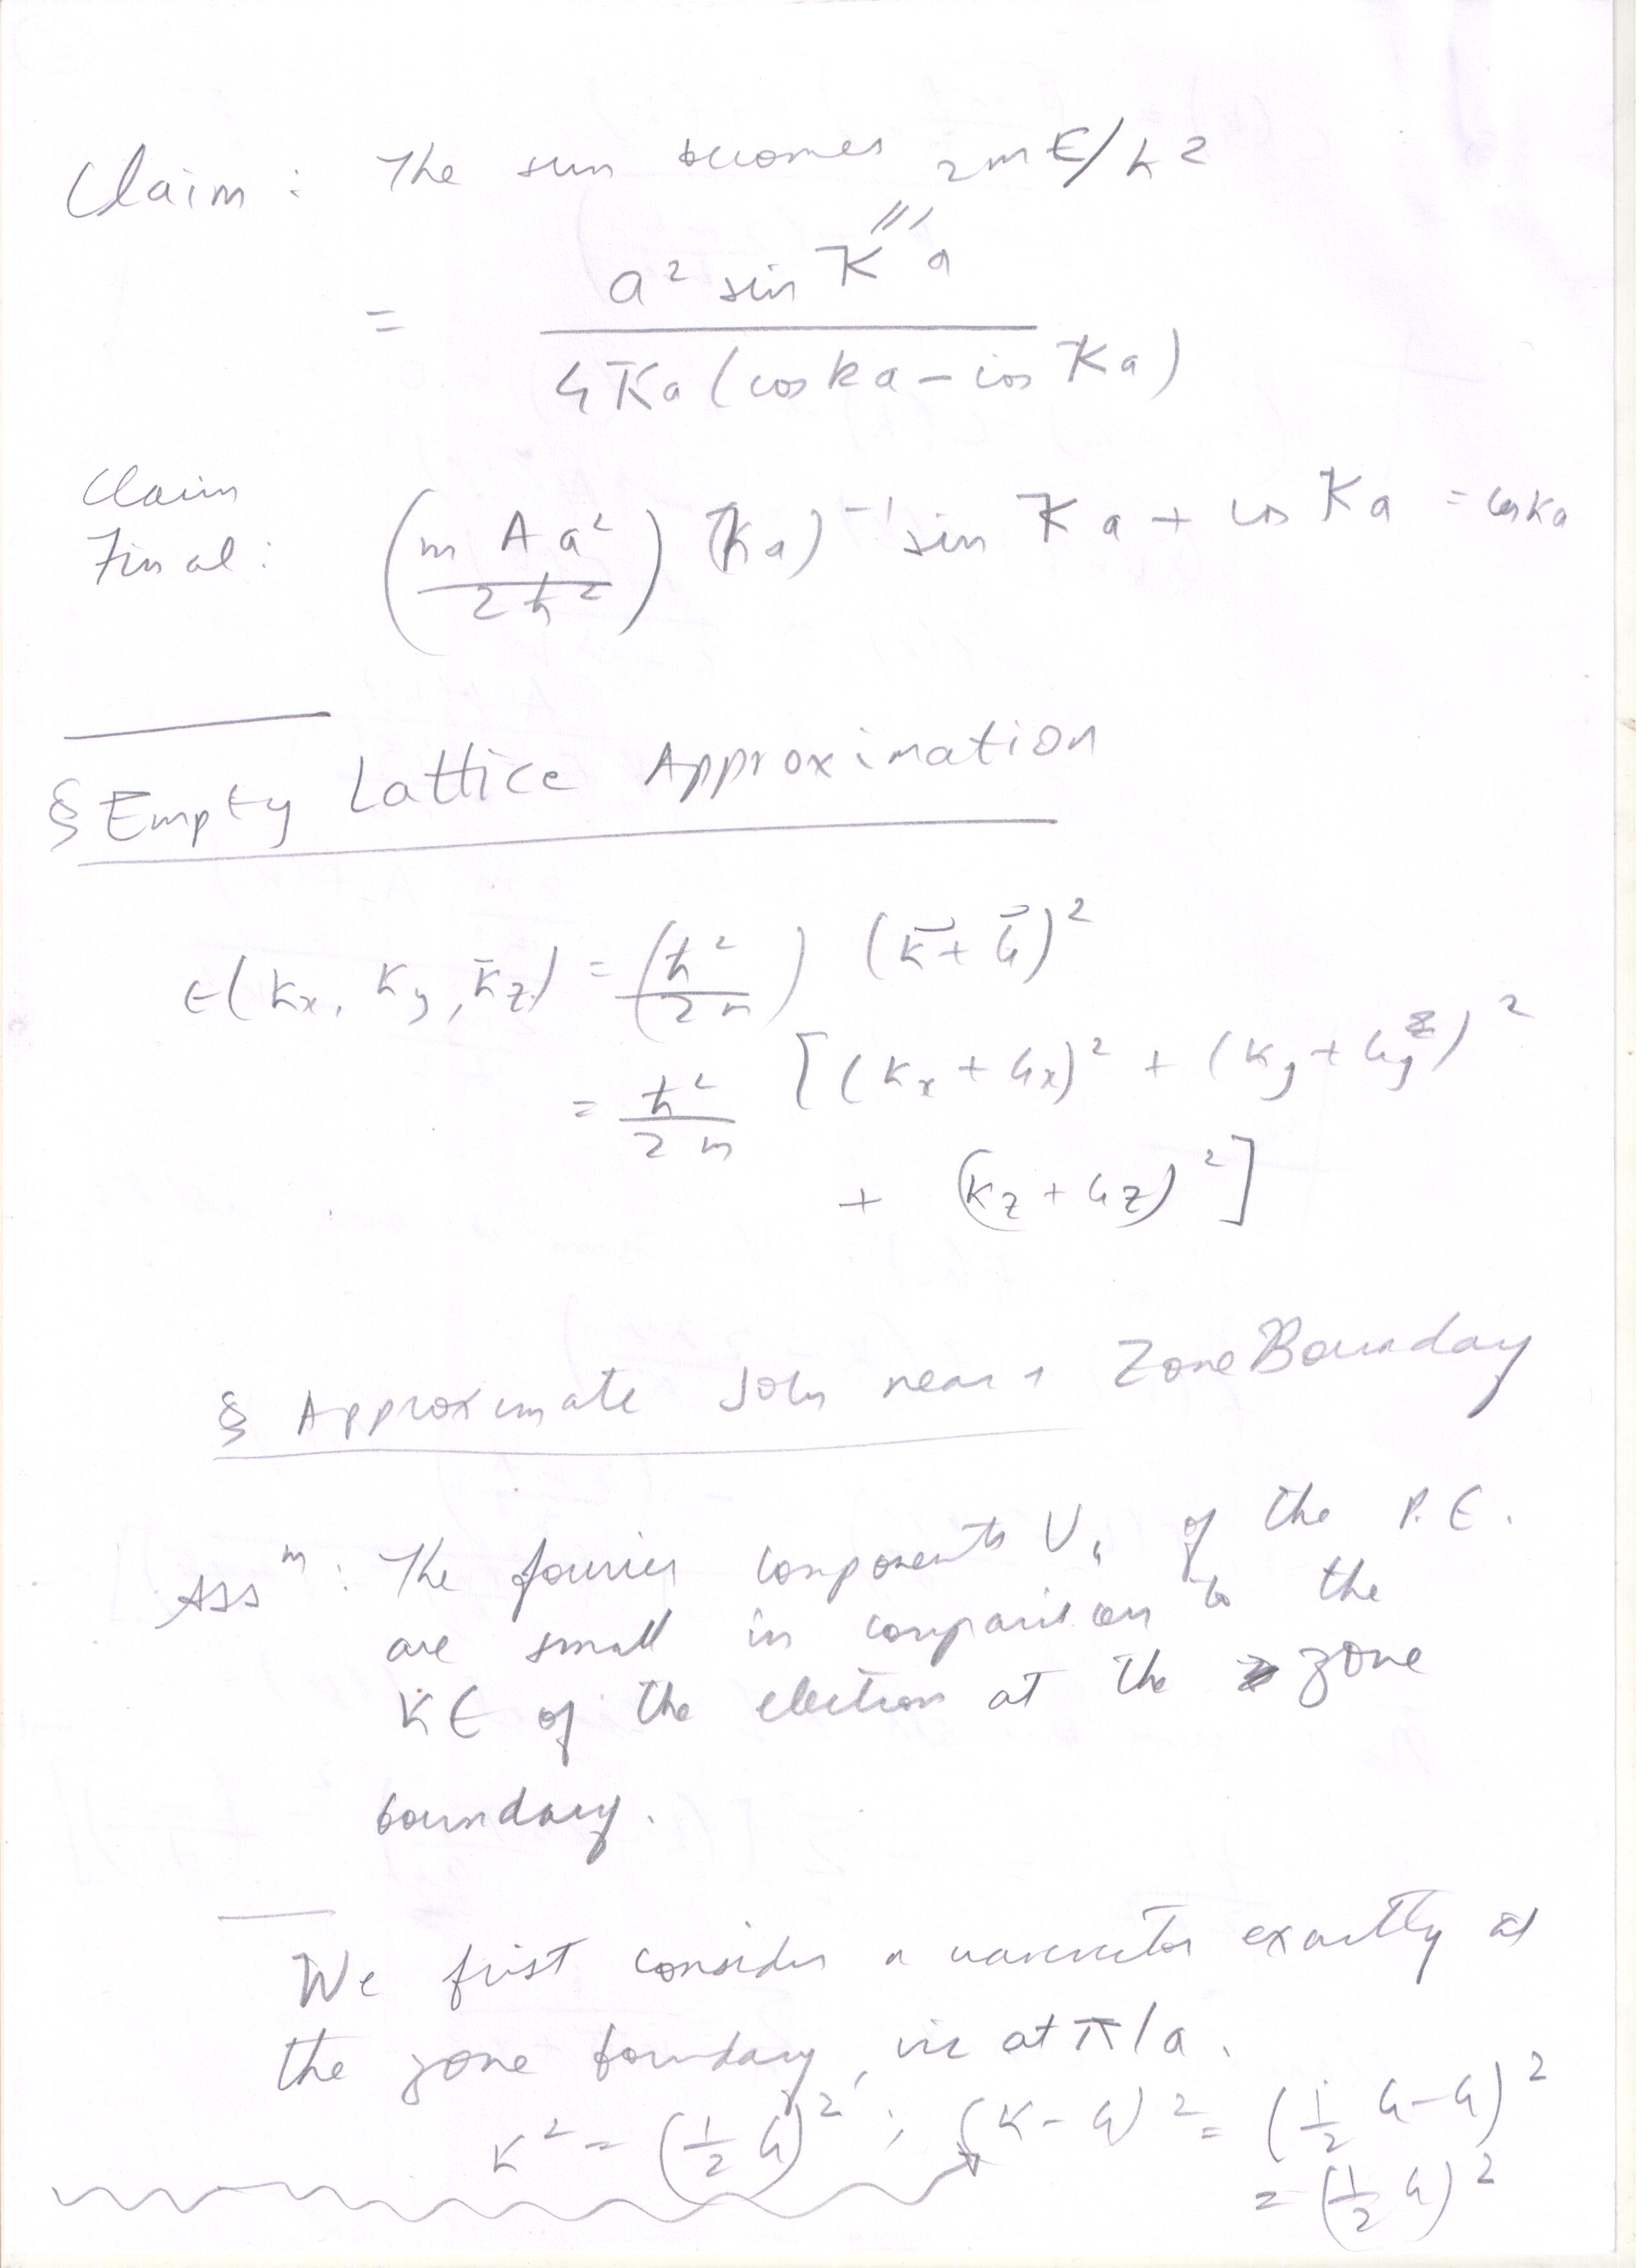 Claim : The sum becomes 2mE/ħ2
= a² sin K a / 4Ka (cos ka - cos Ka)
Claim
Final : (m A a² / 2ħ²) (Ka)⁻¹ sin Ka + cos Ka = cos ka
§ Empty Lattice Approximation
ε(kx, ky, kz) = (ħ² / 2m) (k⃗ + G⃗)²
= ħ² / 2m [(kx + Gx)² + (ky + Gy)²
+ (kz + Gz)²]
§ Approximate Soln near a Zone Boundary
Assⁿ : The fourier components U_G of the P.E.
are small in comparison to the
KE of the electron at the zone
boundary.
We first consider a wavevector exactly at
the zone boundary, viz at π/a.
K² = (½ G)² ; (K - G)² = (½ G - G)²
= (½ G)²